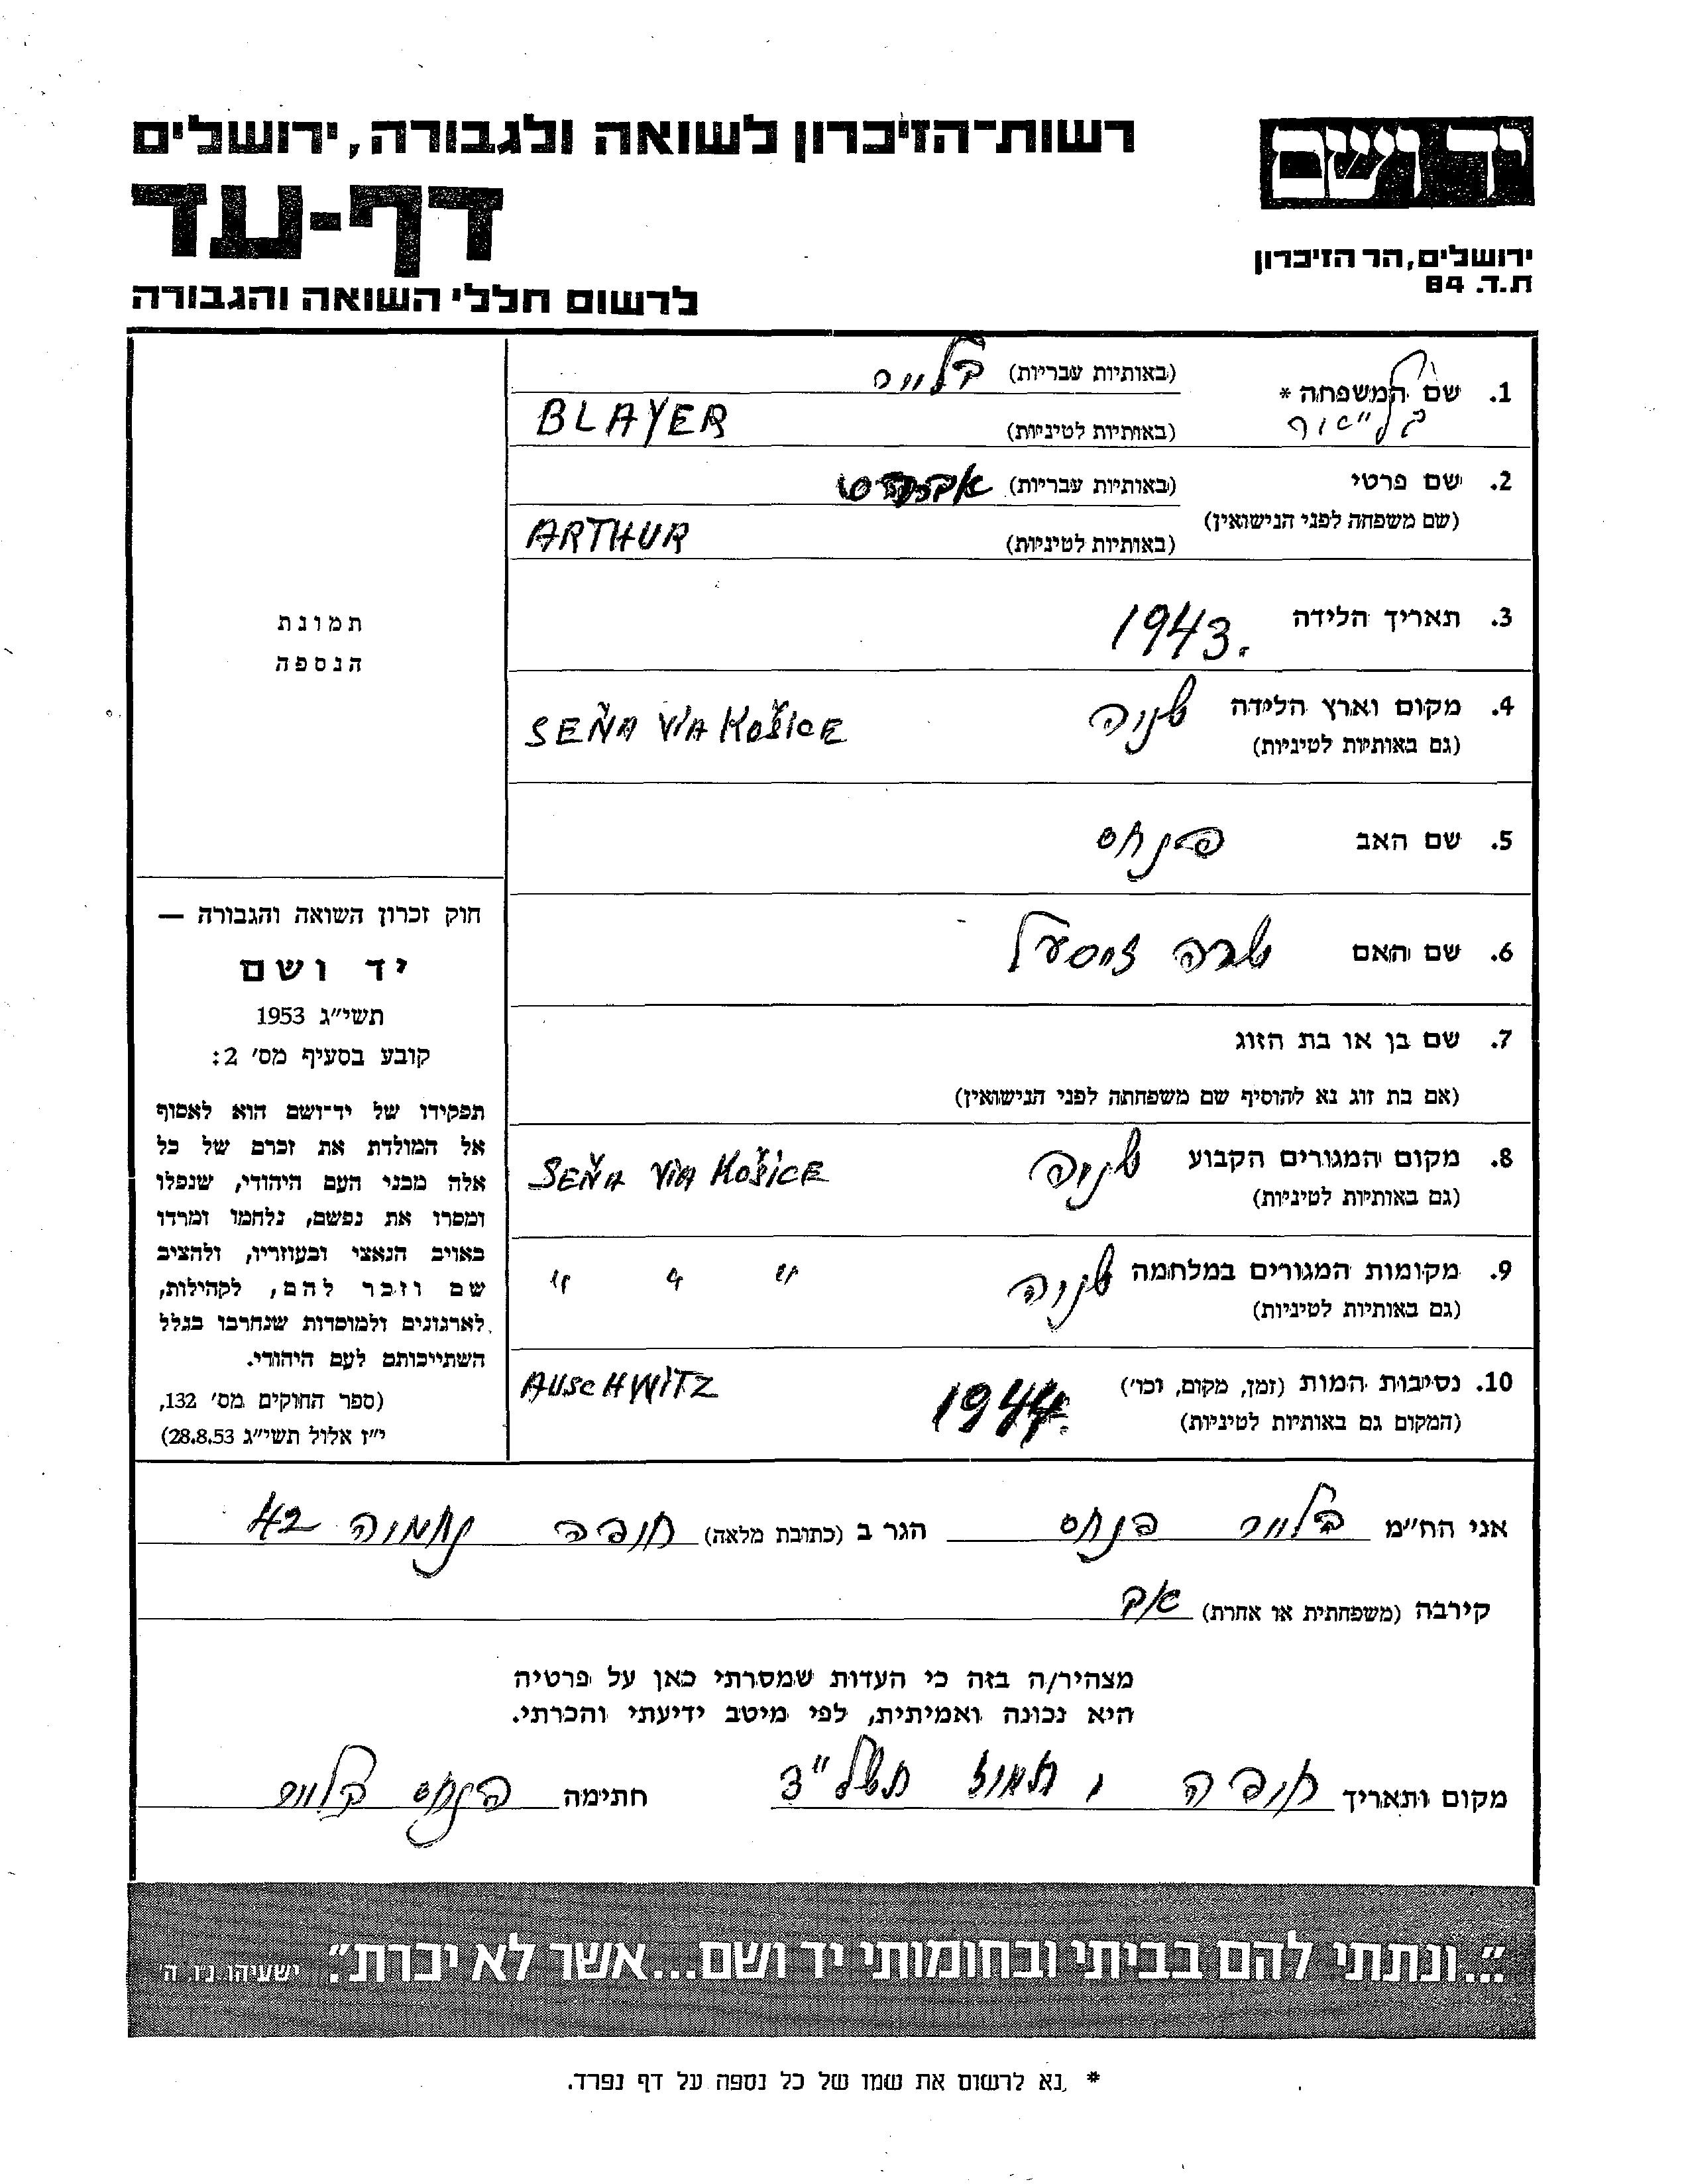 רשות-הזיכרון לשואה ולגבורה, ירושלים
דף-עד
לרשום חללי השואה והגבורה
יד ושם
ירושלים, הר הזיכרון
ת.ד. 84
1. שם המשפחה *
(באותיות עבריות) בלייר
(באותיות לטיניות) BLAYER
2. שם פרטי
(שם משפחה לפני הנישואין)
(באותיות עבריות)
(באותיות לטיניות) ARTHUR
3. תאריך הלידה 1943.
4. מקום וארץ הלידה שניה SEŇA VIA KOŠICE
(גם באותיות לטיניות)
5. שם האב פנחס
6. שם האם שרה
7. שם בן או בת הזוג
(אם בת זוג נא להוסיף שם משפחתה לפני הנישואין)
8. מקום המגורים הקבוע שניה SEŇA VIA KOŠICE
(גם באותיות לטיניות)
9. מקומות המגורים במלחמה שניה " " "
(גם באותיות לטיניות)
10. נסיבות המות (זמן, מקום, וכו') 1944. AUSCHWITZ
(המקום גם באותיות לטיניות)
תמונת
הנספה
חוק זכרון השואה והגבורה —
יד ושם
תשי"ג 1953
קובע בסעיף מס' 2:
תפקידו של יד-ושם הוא לאסוף
אל המולדת את זכרם של כל
אלה מבני העם היהודי, שנפלו
ומסרו את נפשם, נלחמו ומרדו
באויב הנאצי ובעוזריו, ולהציב
שם וזכר להם, לקהילות,
לארגונים ולמוסדות שנחרבו בגלל
השתייכותם לעם היהודי.
(ספר החוקים מס' 132,
י"ז אלול תשי"ג 28.8.53)
אני הח"מ בלייר פנחס הגר ב (כתובת מלאה) חיפה נחמיה 42
קירבה (משפחתית או אחרת) אב
מצהיר/ה בזה כי העדות שמסרתי כאן על פרטיה
היא נכונה ואמיתית, לפי מיטב ידיעתי והכרתי.
מקום ותאריך חיפה ו תמוז תשל"ד חתימה פנחס בלייר
"...ונתתי להם בביתי ובחומותי יד ושם...אשר לא יכרת". ישעיהו נ"ו ה'
* נא לרשום את שמו של כל נספה על דף נפרד.